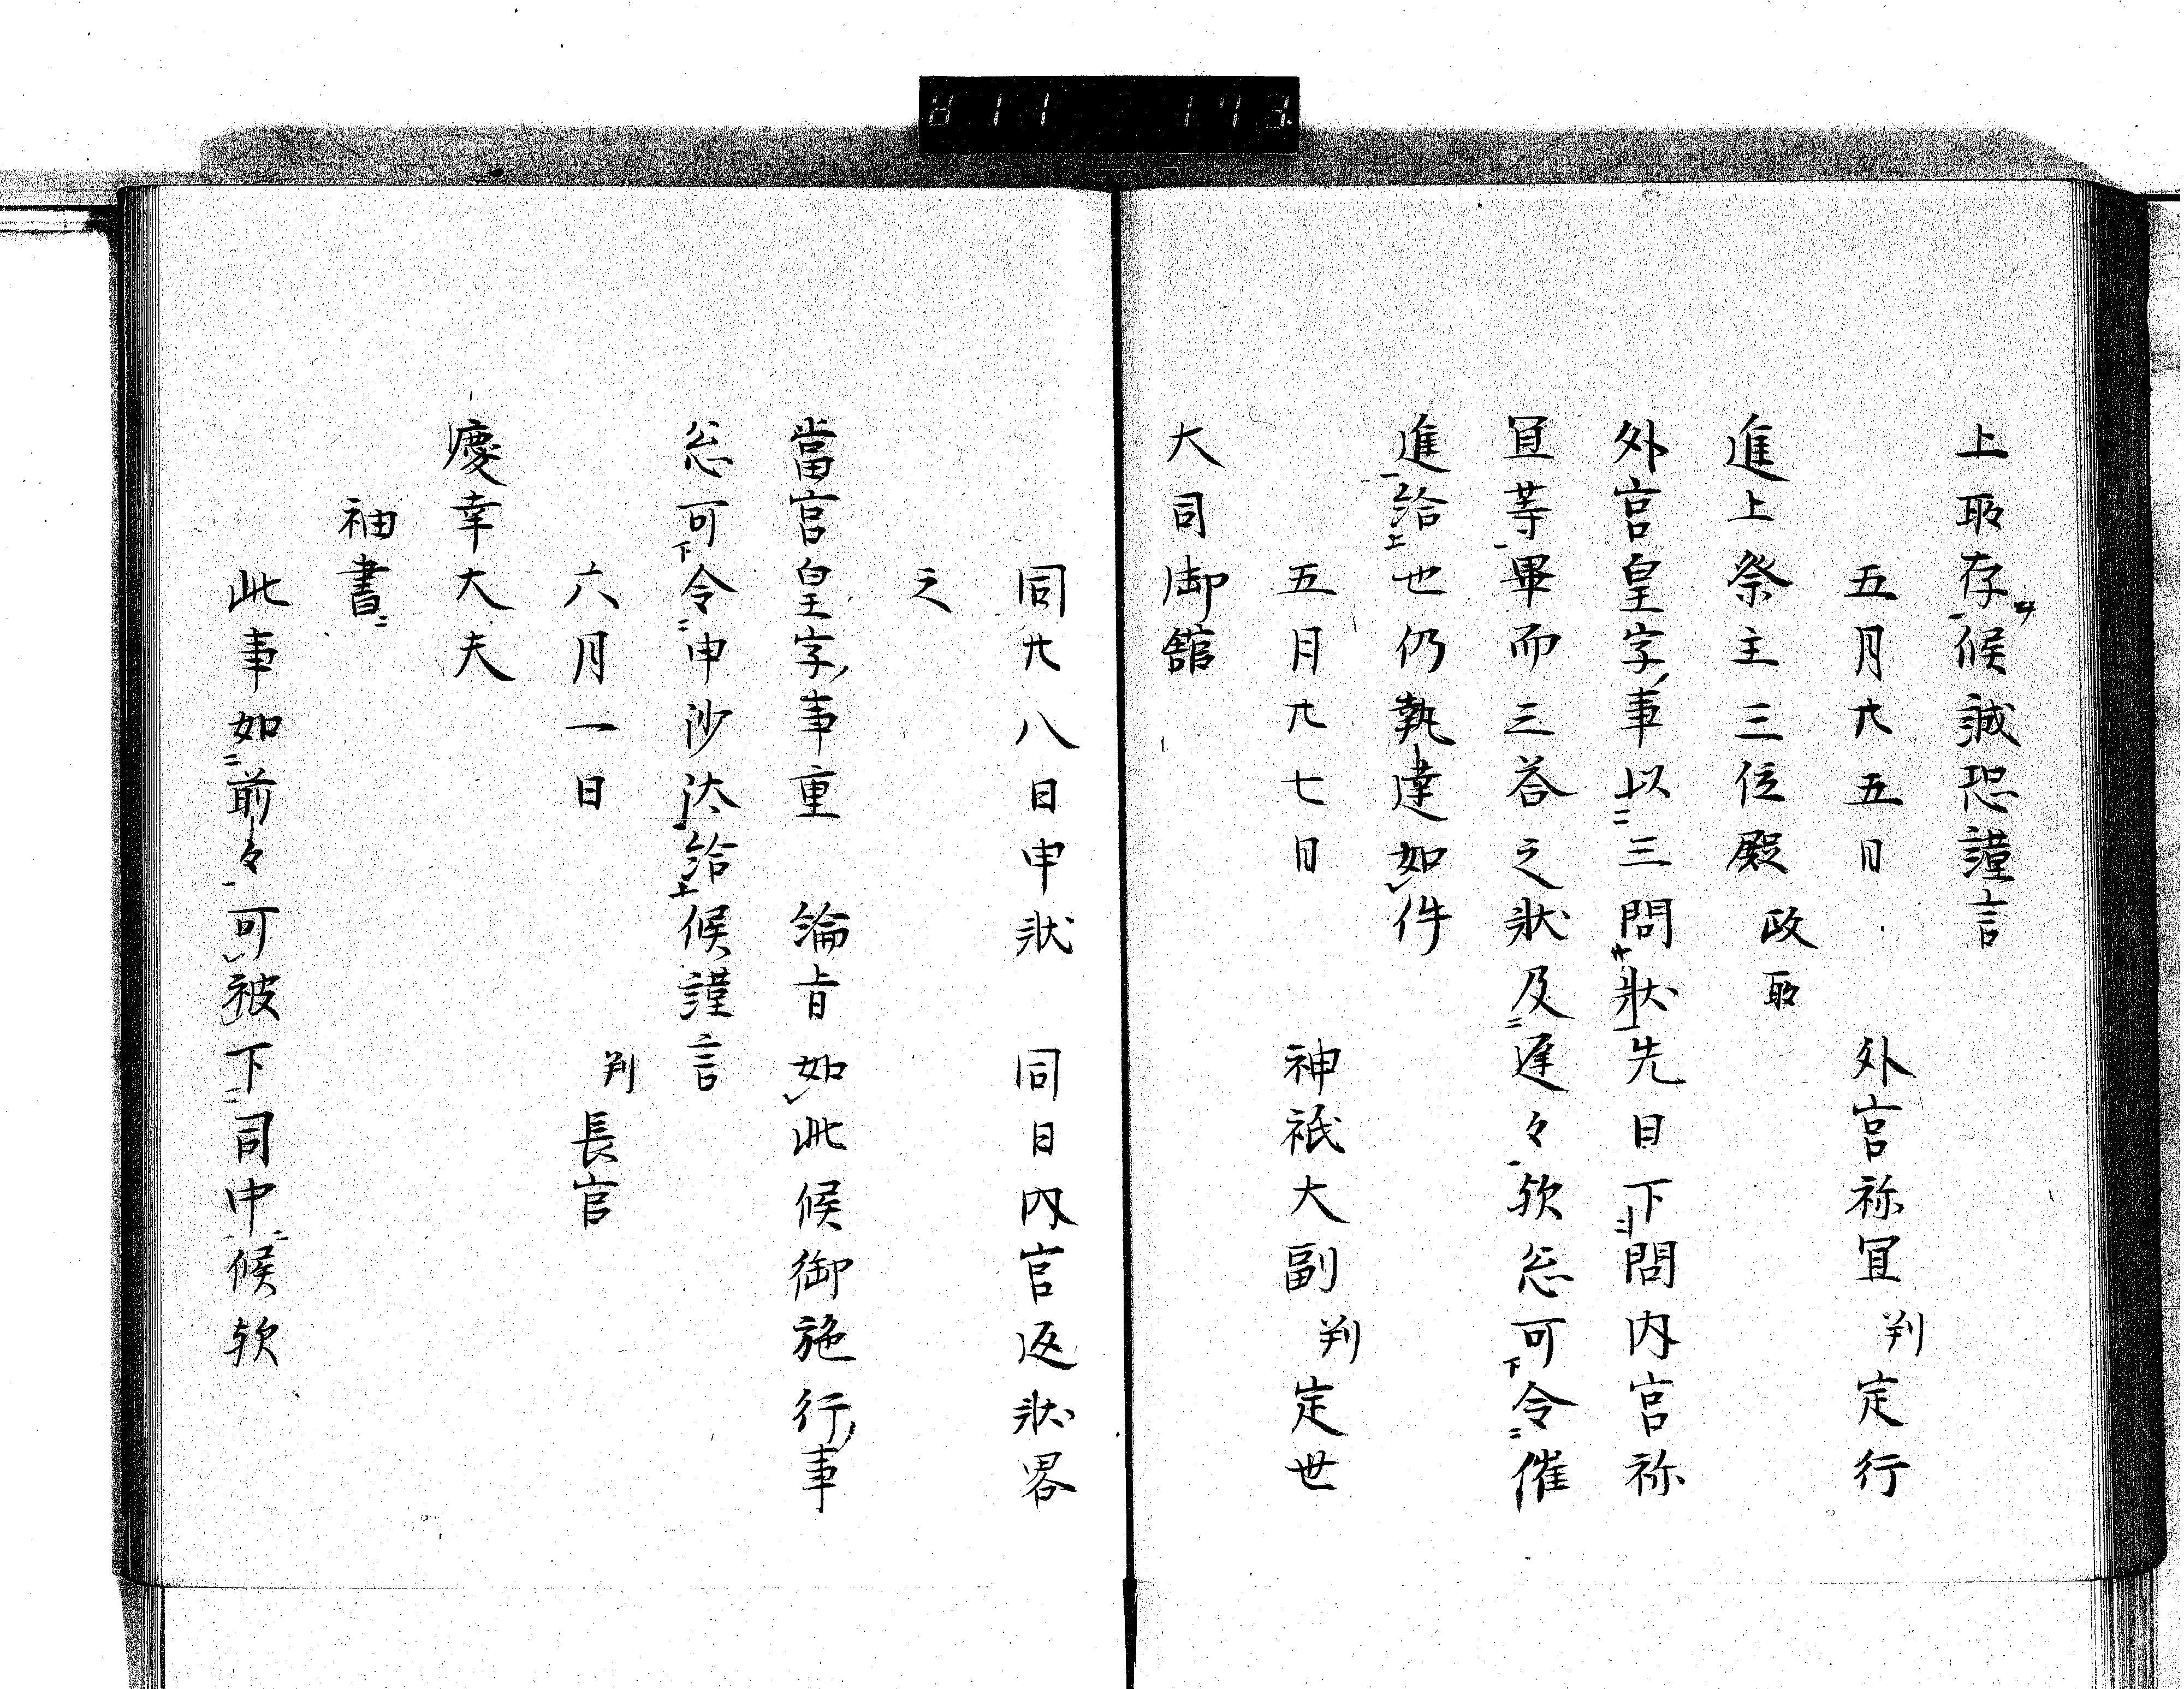 上所存候誠恐謹言
五月廿五日　外宮祢冝判定行
進上祭主三位殿政所
外宮皇字事以三問状先日下問内宮祢
冝等畢而三答之状及遅々欤忩可令催
進給也仍執達如件
五月廿七日　神祇大副判定世
大司御舘
同廿八日申状　同日内宮返状畧
之
當宮皇字事重　綸旨如此候御施行事
忩可令申沙汰給候謹言
六月一日　判長官
慶幸大夫
袖書
此事如前々可被下司中候欤